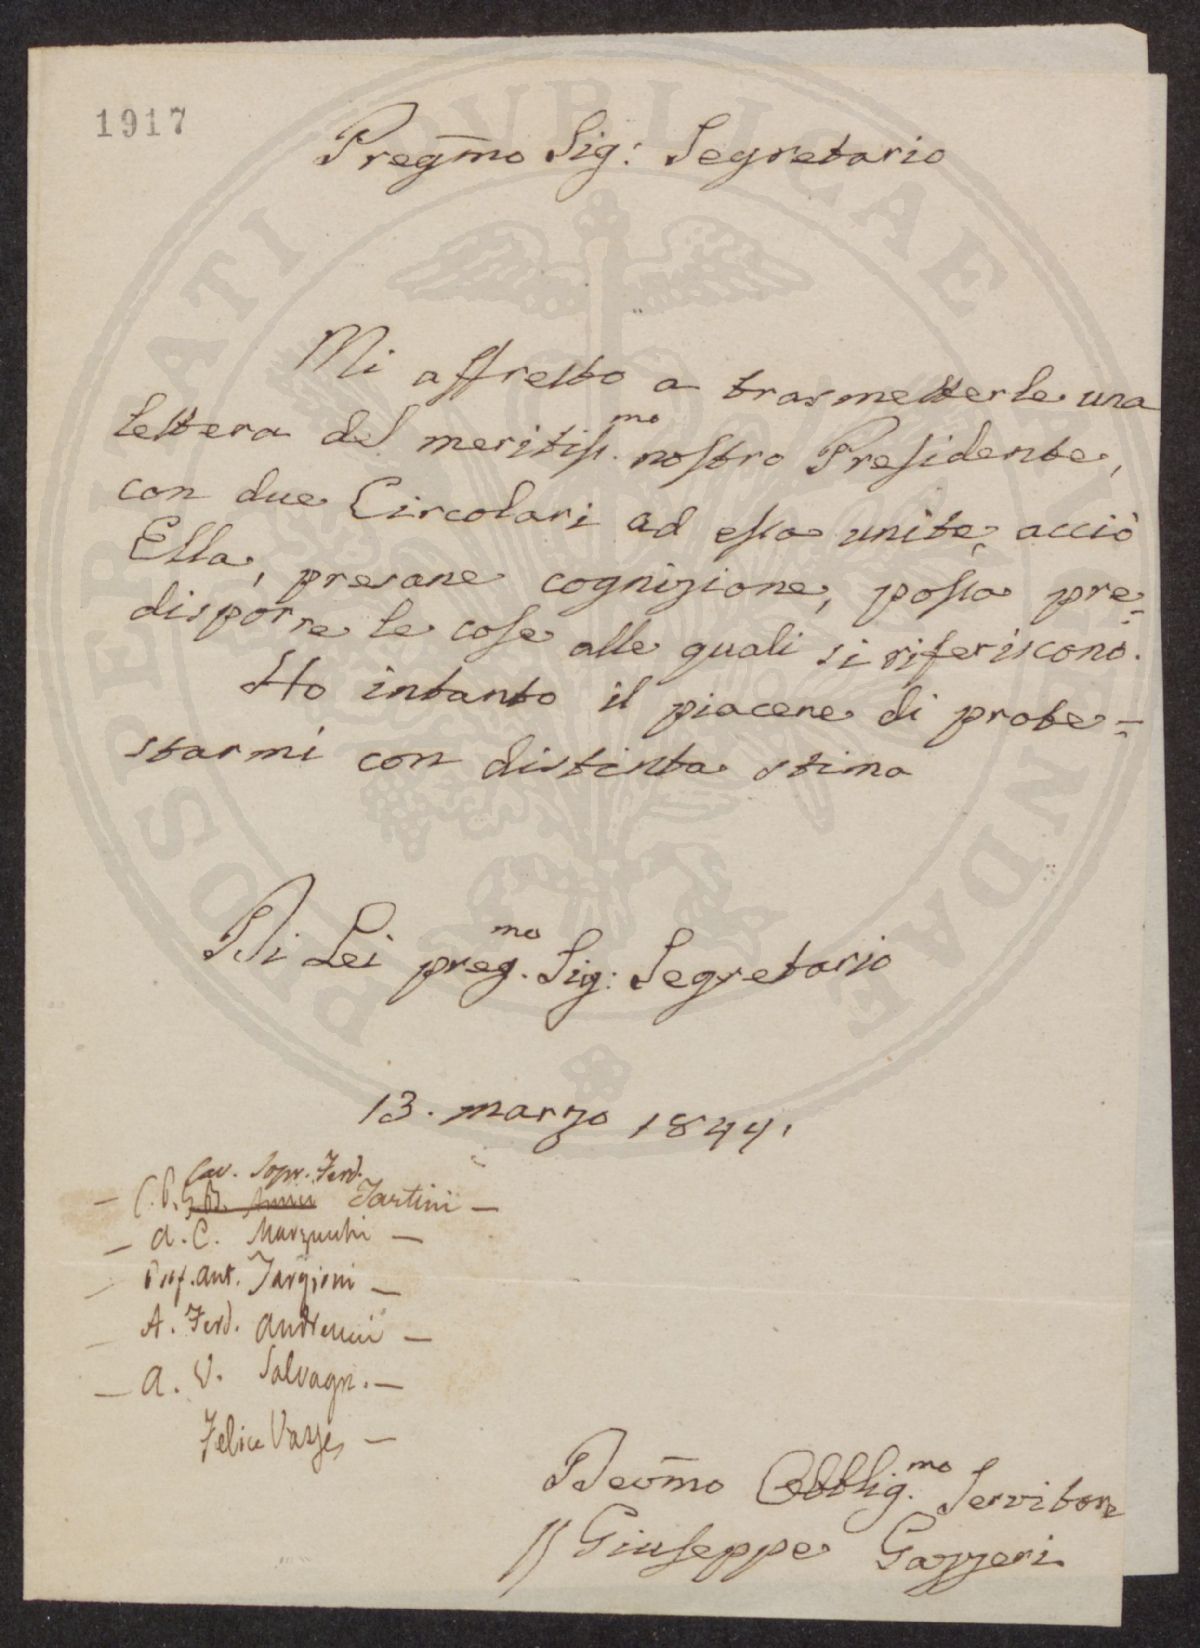 1917
Pregmo Sig: Segretario
Mi affretto a trasmetterle una
lettera del meritiss.mo nostro Presidente,
con due Circolari ad essa unite, acciò
Ella, presane cognizione, possa pre=
disporre le cose alle quali si riferiscono.
Ho intanto il piacere di prote=
starmi con distinta stima
Di Lei preg.mo Sig: Segretario
13. marzo 1844.
Cav. Sopr. Ferd.
Tartini —
— A. C. Marzucchi —
— Prof. Ant. Targioni —
— A. Ferd. Andreucci —
— A. V. Salvagn. —
Felice —
Devmo Obblig.mo Servitore
Giuseppe Gazzeri
PROSPERITATI PUBLICAE AUGENDAE